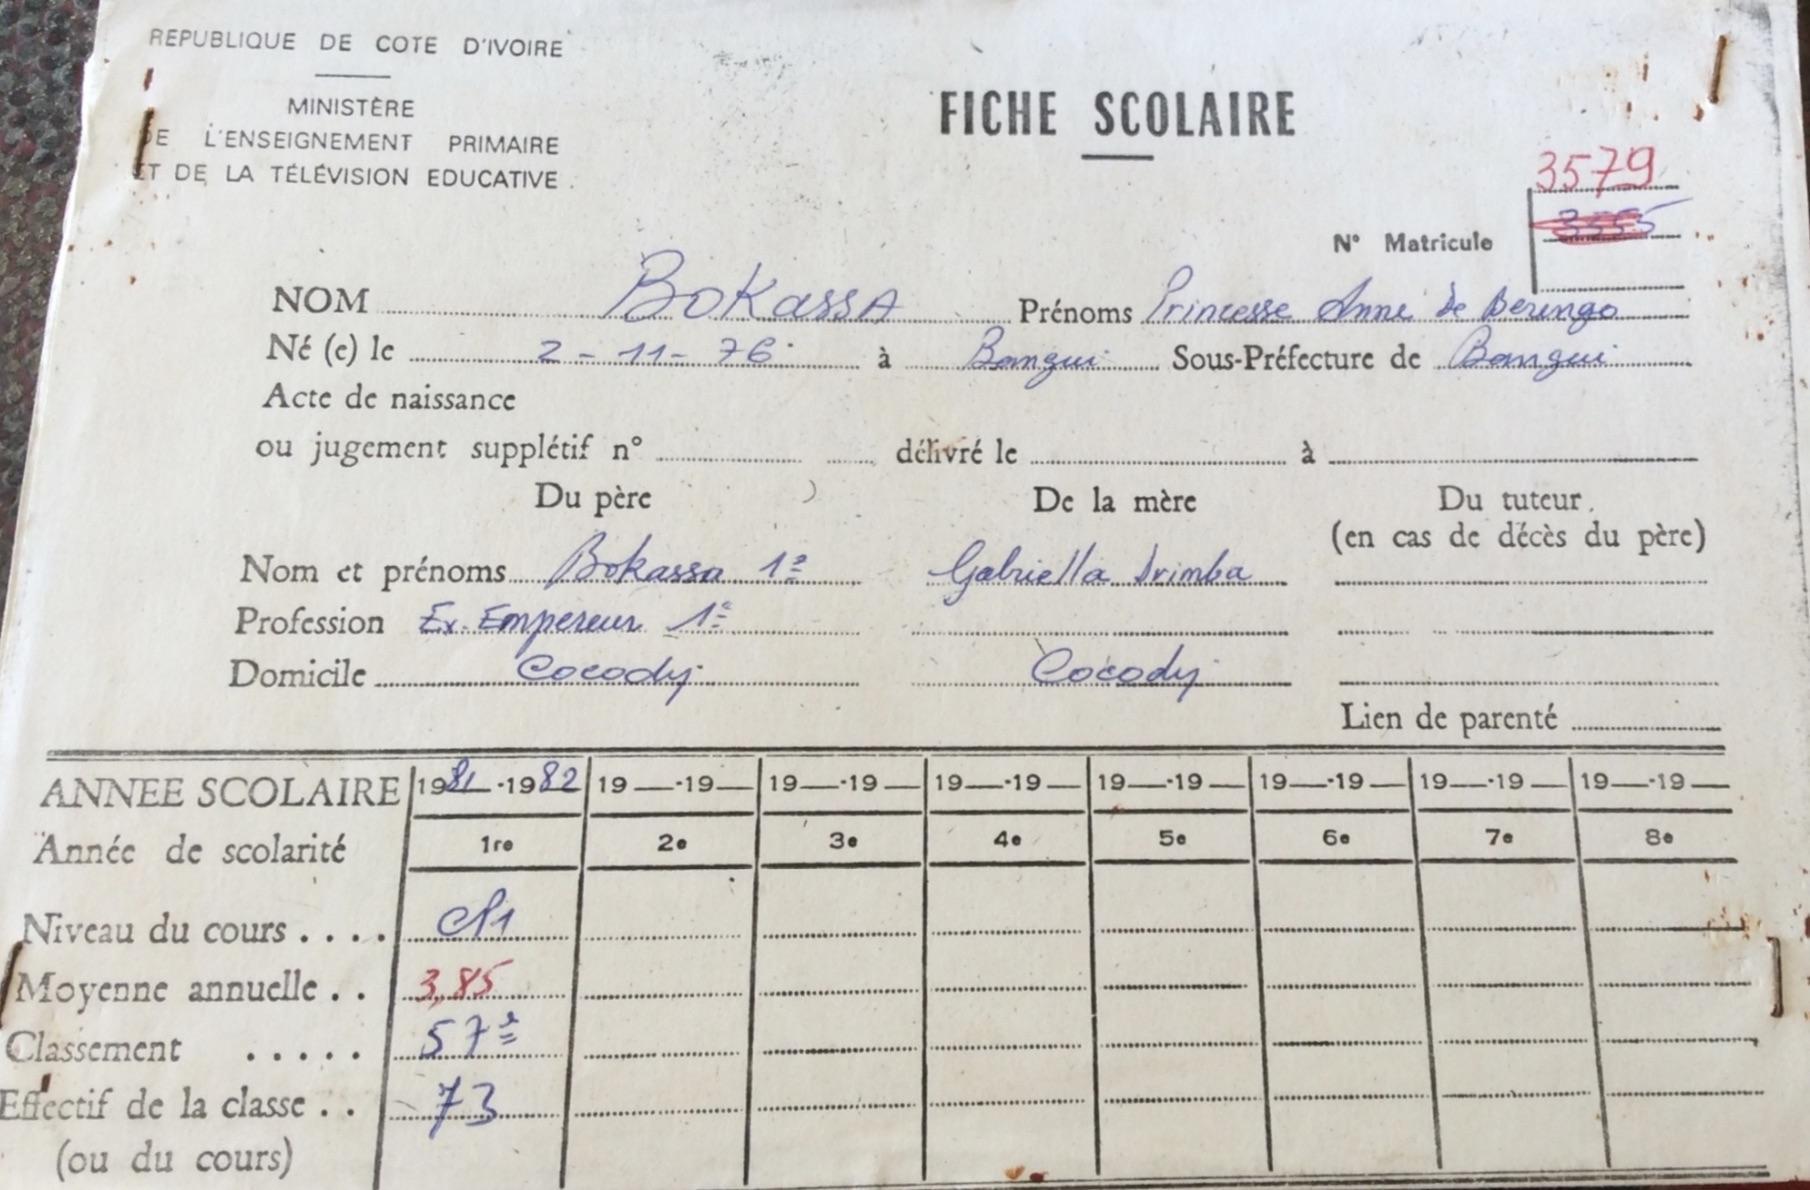 REPUBLIQUE DE COTE D'IVOIRE
MINISTÈRE
DE L'ENSEIGNEMENT PRIMAIRE
ET DE LA TÉLÉVISION EDUCATIVE
FICHE SCOLAIRE
3579
N° Matricule 3555
NOM BOKASSA Prénoms Princesse Anne de Berengo
Né (e) le 2-11-76 à Bangui Sous-Préfecture de Bangui
Acte de naissance
ou jugement supplétif n° délivré le à
Du père De la mère Du tuteur
(en cas de décès du père)
Nom et prénoms Bokassa 1e Gabriella Drimba
Profession Ex-Empereur 1e
Domicile Cocody Cocody
Lien de parenté
ANNEE SCOLAIRE 1981-1982 19-19 19-19 19-19 19-19 19-19 19-19 19-19
Année de scolarité 1re 2e 3e 4e 5e 6e 7e 8e
Niveau du cours .... CP1
Moyenne annuelle .. 3,85
Classement ..... 57e
Effectif de la classe .. 73
(ou du cours)